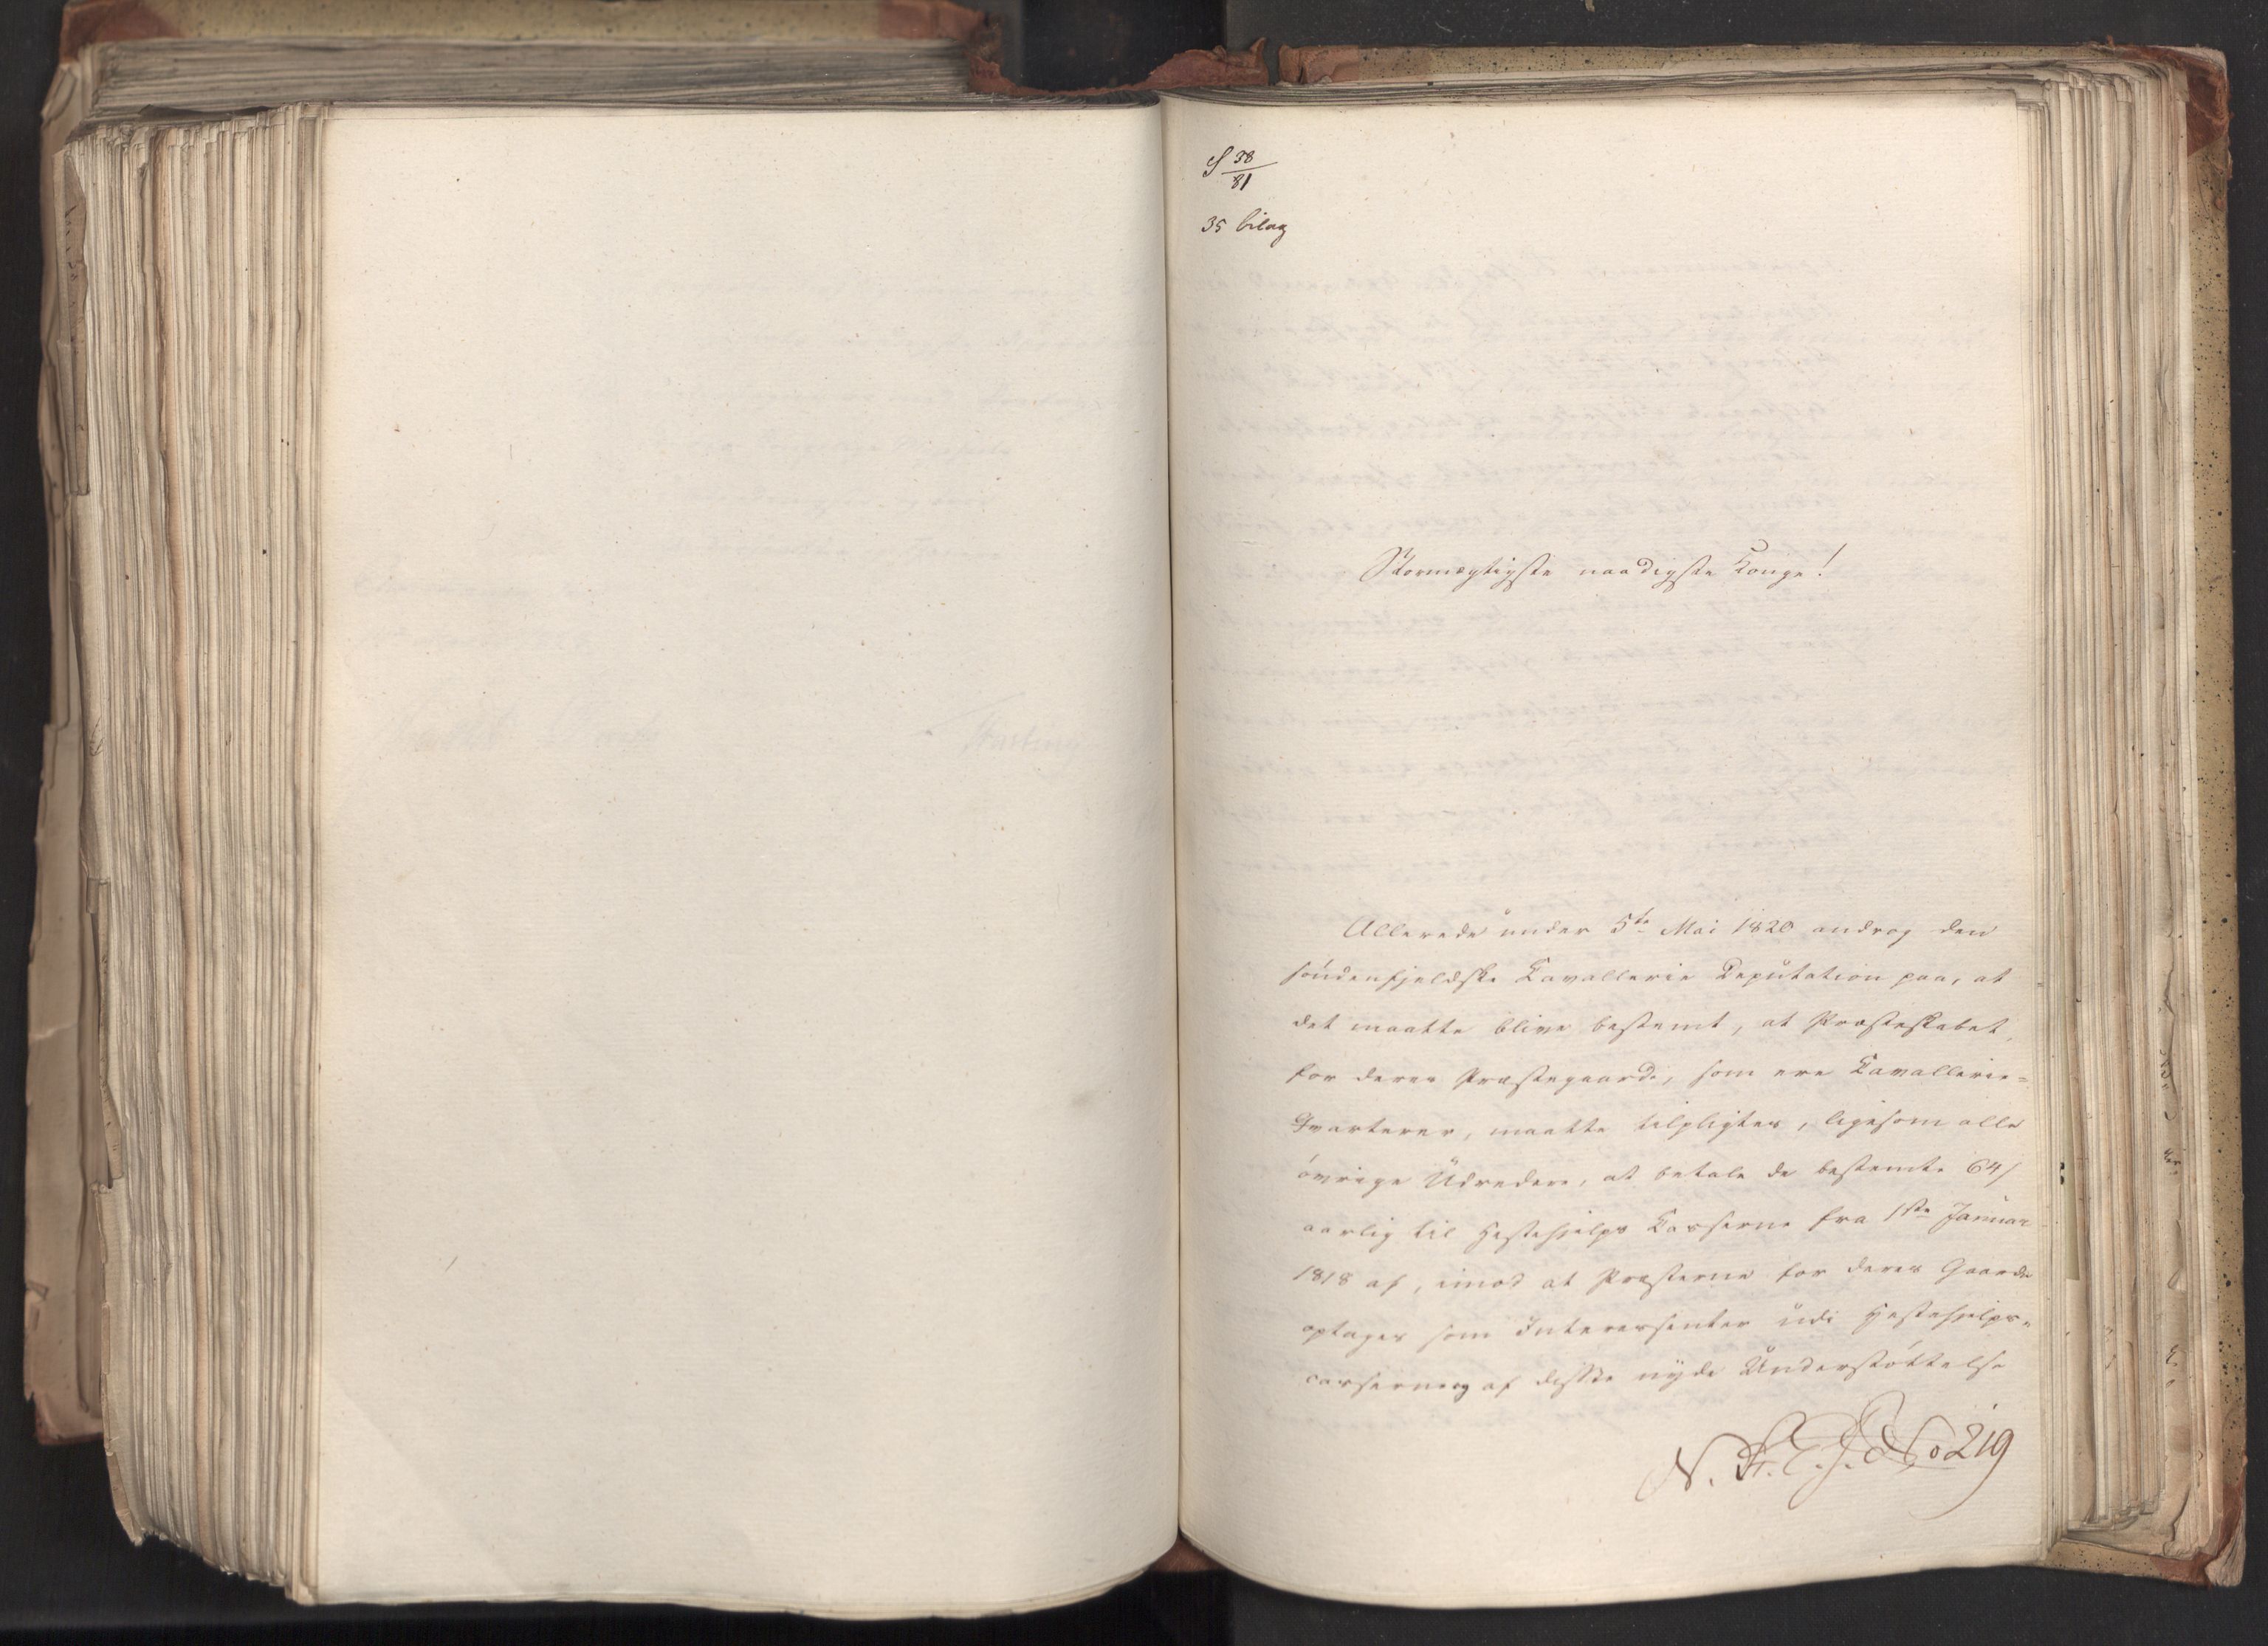 S 38/81
35 bilag
Stormægtigste naadigste Konge!
Allerede under 5te Mai 1820 androg den
söndenfjeldske Cavallerie Deputation paa, at
det maatte blive bestemt, at Præsteskabet,
for deres Præstegaarde, som ere Cavallerie=
Qvarterer, maatte tilpligtes, ligesom alle
övrige Udredere, at betale de bestemte 64 s
aarlig til Hestehjelps Casserne fra 1ste Januar
1818 af, imod at Præsterne for deres Gaarde
optages som Interessenter udi Hestehjelps=
casserne og af disse nyde Understöttelse
No 219